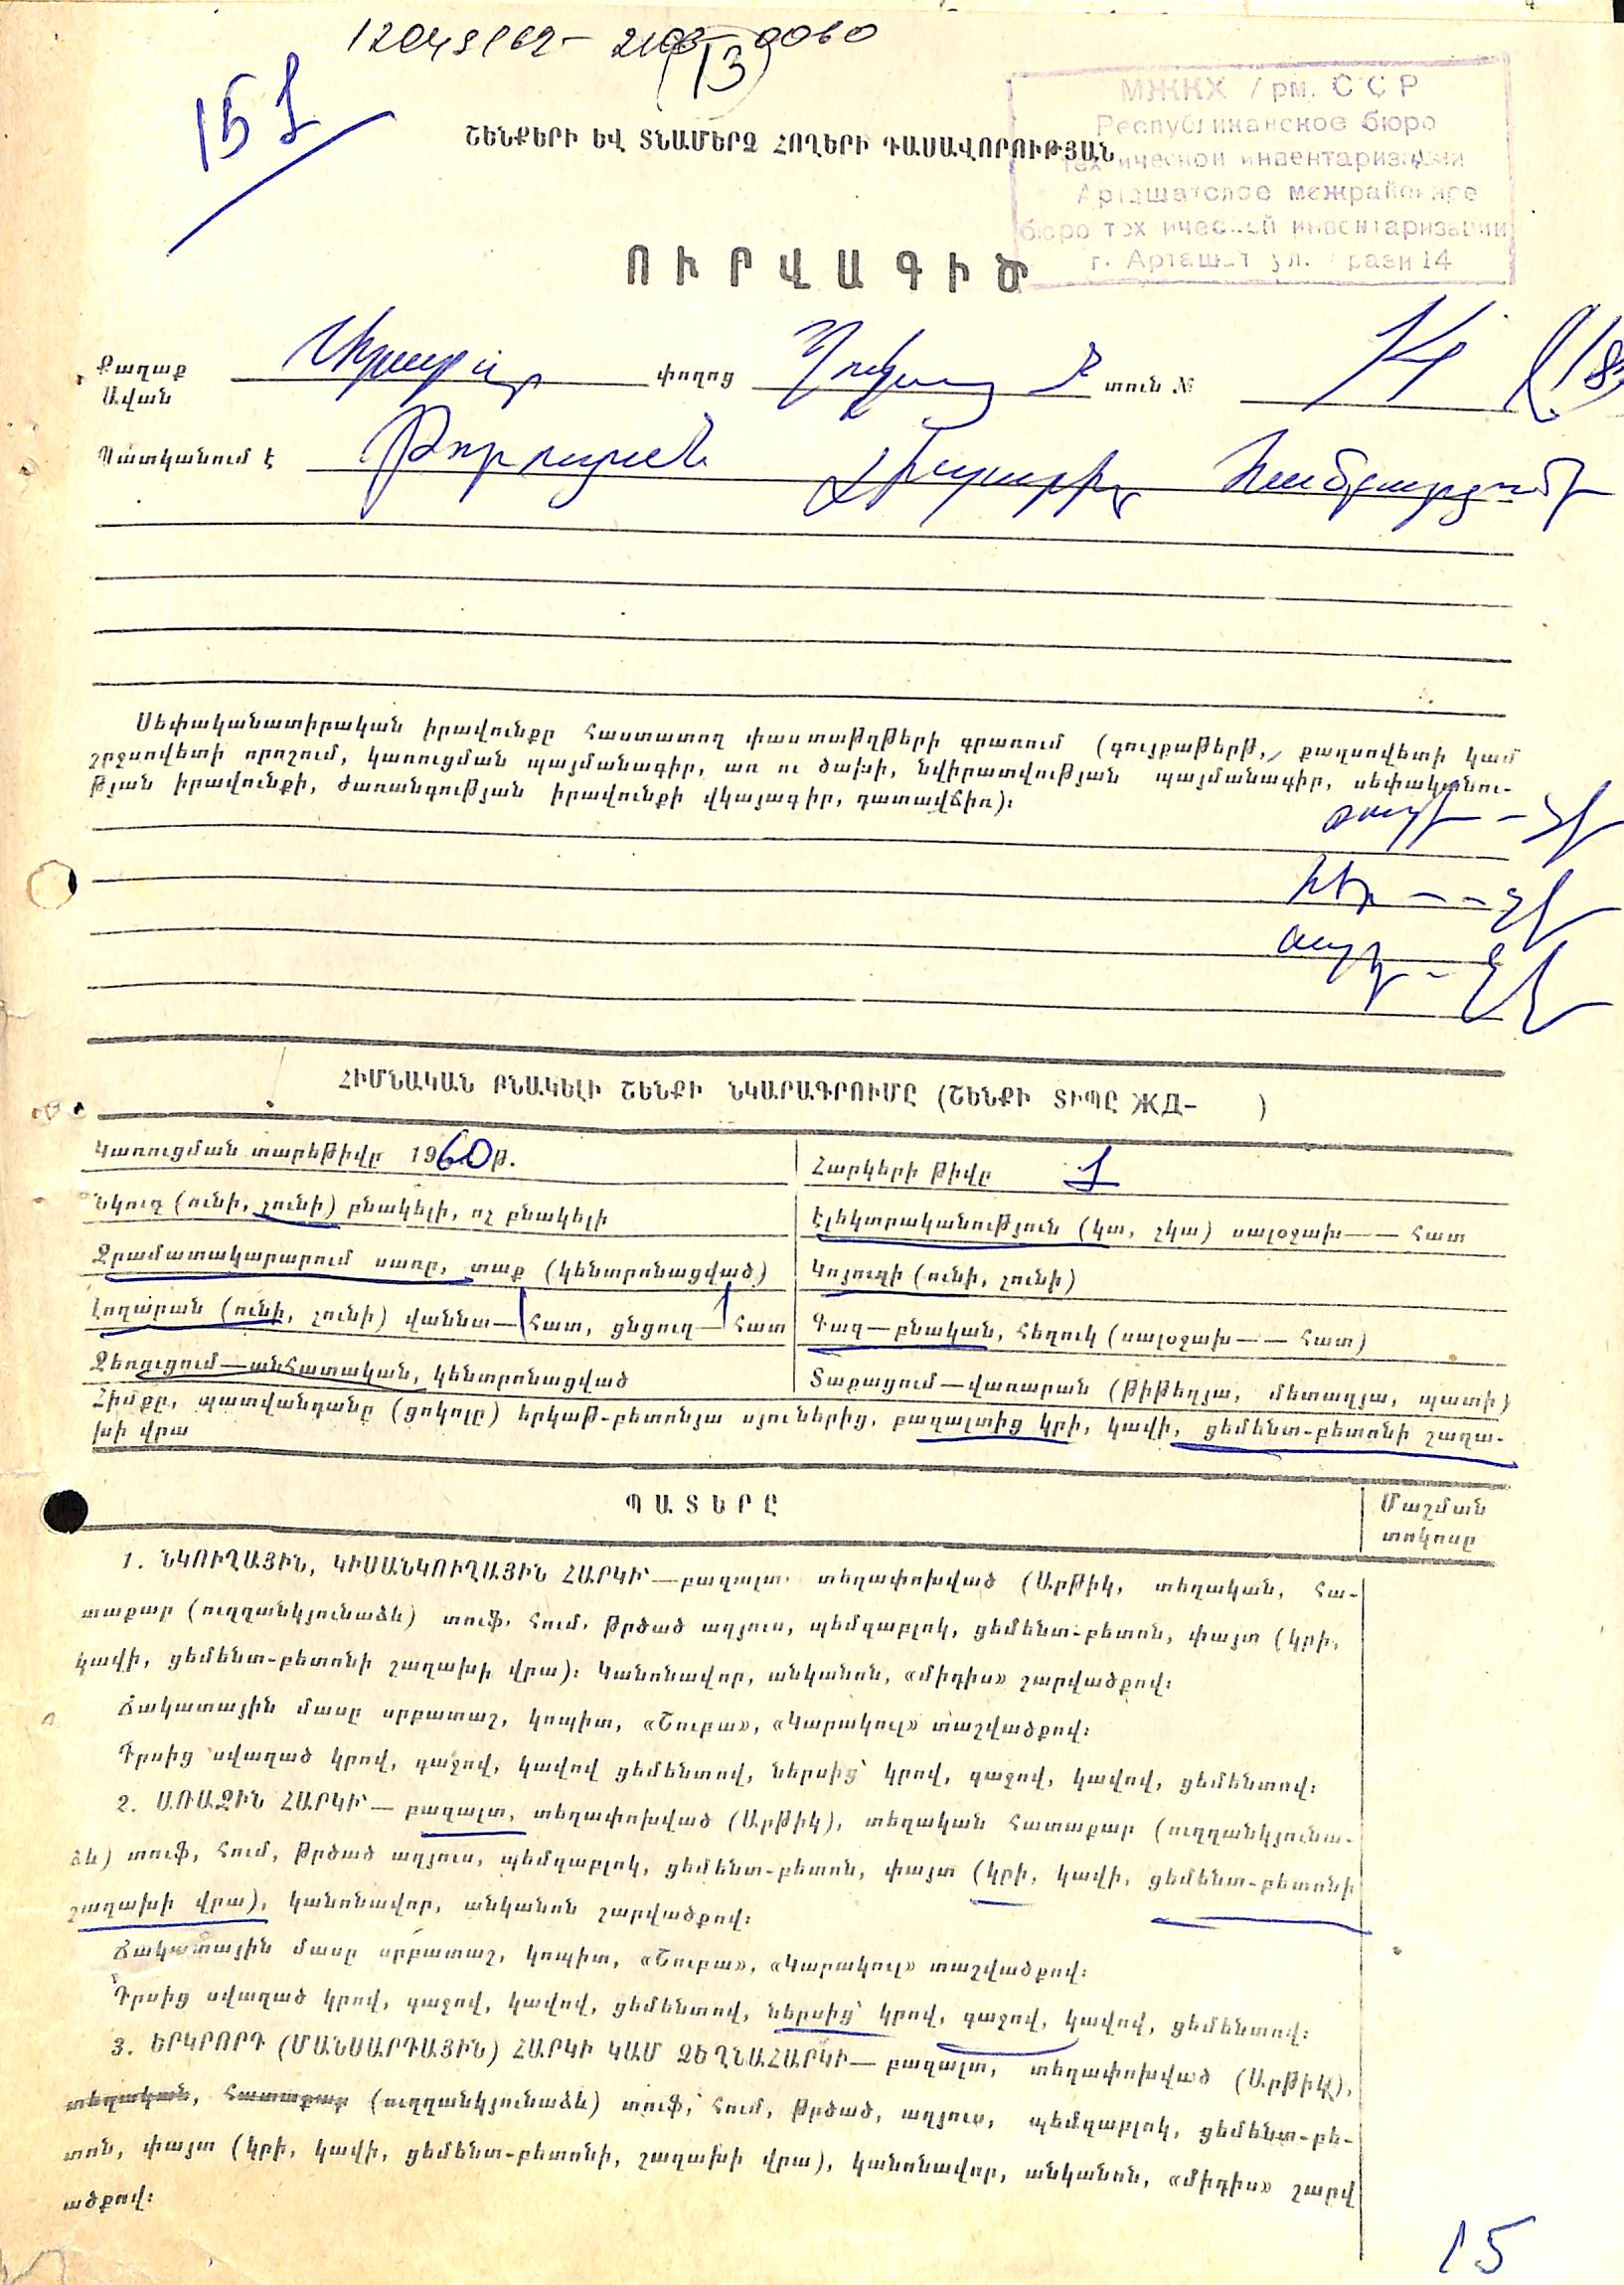 (13)
151
МЖКХ Арм. ССР
Республиканское бюро
технической инвентаризации
Арташатское межрайонное
бюро технической инвентаризации
г. Арташат ул. 14
ՇԵՆՔԵՐԻ ԵՎ ՏՆԱՄԵՐՁ ՀՈՂԵՐԻ ԴԱՍԱՎՈՐՈՒԹՅԱՆ
ՈՒՐՎԱԳԻԾ
Քաղաք փողոց տուն №
Ավան
Պատկանում է Թորոսյան
Սեփականատիրական իրավունքը հաստատող փաստաթղթերի գրառում (գույքաթերթ, քաղսովետի կամ
շրջսովետի որոշում, կառուցման պայմանագիր, առ ու ծախի, նվիրատվության պայմանագիր, սեփականու-
թյան իրավունքի, ժառանգության իրավունքի վկայագիր, դատավճիռ)։
ՀԻՄՆԱԿԱՆ ԲՆԱԿԵԼԻ ՇԵՆՔԻ ՆԿԱՐԱԳՐՈՒՄԸ (ՇԵՆՔԻ ՏԻՊԸ ЖД- )
Կառուցման տարեթիվը 1960թ. Հարկերի թիվը 1
Նկուղ (ունի, չունի) բնակելի, ոչ բնակելի էլեկտրականություն (կա, չկա) սալօջախ— — հատ
Ջրամատակարարում սառը, տաք (կենտրոնացված) Կոյուղի (ունի, չունի)
Լողարան (ունի, չունի) վաննա— 1 հատ, ցնցուղ— 1 հատ Գազ—բնական, հեղուկ (սալօջախ— — հատ)
Ջեռուցում—անհատական, կենտրոնացված Տաքացում—վառարան (թիթեղյա, մետաղյա, պատի)
Հիմքը, պատվանդանը (ցոկոլը) երկաթ-բետոնյա սյուներից, բազալտից կրի, կավի, ցեմենտ-բետոնի շաղա-
խի վրա
ՊԱՏԵՐԸ Մաշման
տոկոսը
1. ՆԿՈՒՂԱՅԻՆ, ԿԻՍԱՆԿՈՒՂԱՅԻՆ ՀԱՐԿԻ՝—բազալտ տեղափոխված (Արթիկ, տեղական, հա-
տաքար (ուղղանկյունաձև) տուֆ, հում, թրծած աղյուս, պեմզաբլոկ, ցեմենտ-բետոն, փայտ (կրի,
կավի, ցեմենտ-բետոնի շաղախի վրա)։ Կանոնավոր, անկանոն, «միդիս» շարվածքով։
Ճակատային մասը սրբատաշ, կոպիտ, «Շուբա», «Կարակուլ» տաշվածքով։
Դրսից սվաղած կրով, գաջով, կավով ցեմենտով, ներսից՝ կրով, գաջով, կավով, ցեմենտով։
2. ԱՌԱՋԻՆ ՀԱՐԿԻ՝— բազալտ, տեղափոխված (Արթիկ), տեղական հատաքար (ուղղանկյունա-
ձև) տուֆ, հում, թրծած աղյուս, պեմզաբլոկ, ցեմենտ-բետոն, փայտ (կրի, կավի, ցեմենտ-բետոնի
շաղախի վրա), կանոնավոր, անկանոն շարվածքով։
Ճակատային մասը սրբատաշ, կոպիտ, «Շուբա», «Կարակուլ» տաշվածքով։
Դրսից սվաղած կրով, գաջով, կավով, ցեմենտով, ներսից՝ կրով, գաջով, կավով, ցեմենտով։
3. ԵՐԿՐՈՐԴ (ՄԱՆՍԱՐԴԱՅԻՆ) ՀԱՐԿԻ ԿԱՄ ՁԵՂՆԱՀԱՐԿԻ— բազալտ, տեղափոխված (Արթիկ),
տեղական, հատաքար (ուղղանկյունաձև) տուֆ, հում, թրծած, աղյուս, պեմզաբլոկ, ցեմենտ-բե-
տոն, փայտ (կրի, կավի, ցեմենտ-բետոնի, շաղախի վրա), կանոնավոր, անկանոն, «միդիս» շարվ
ածքով։
15